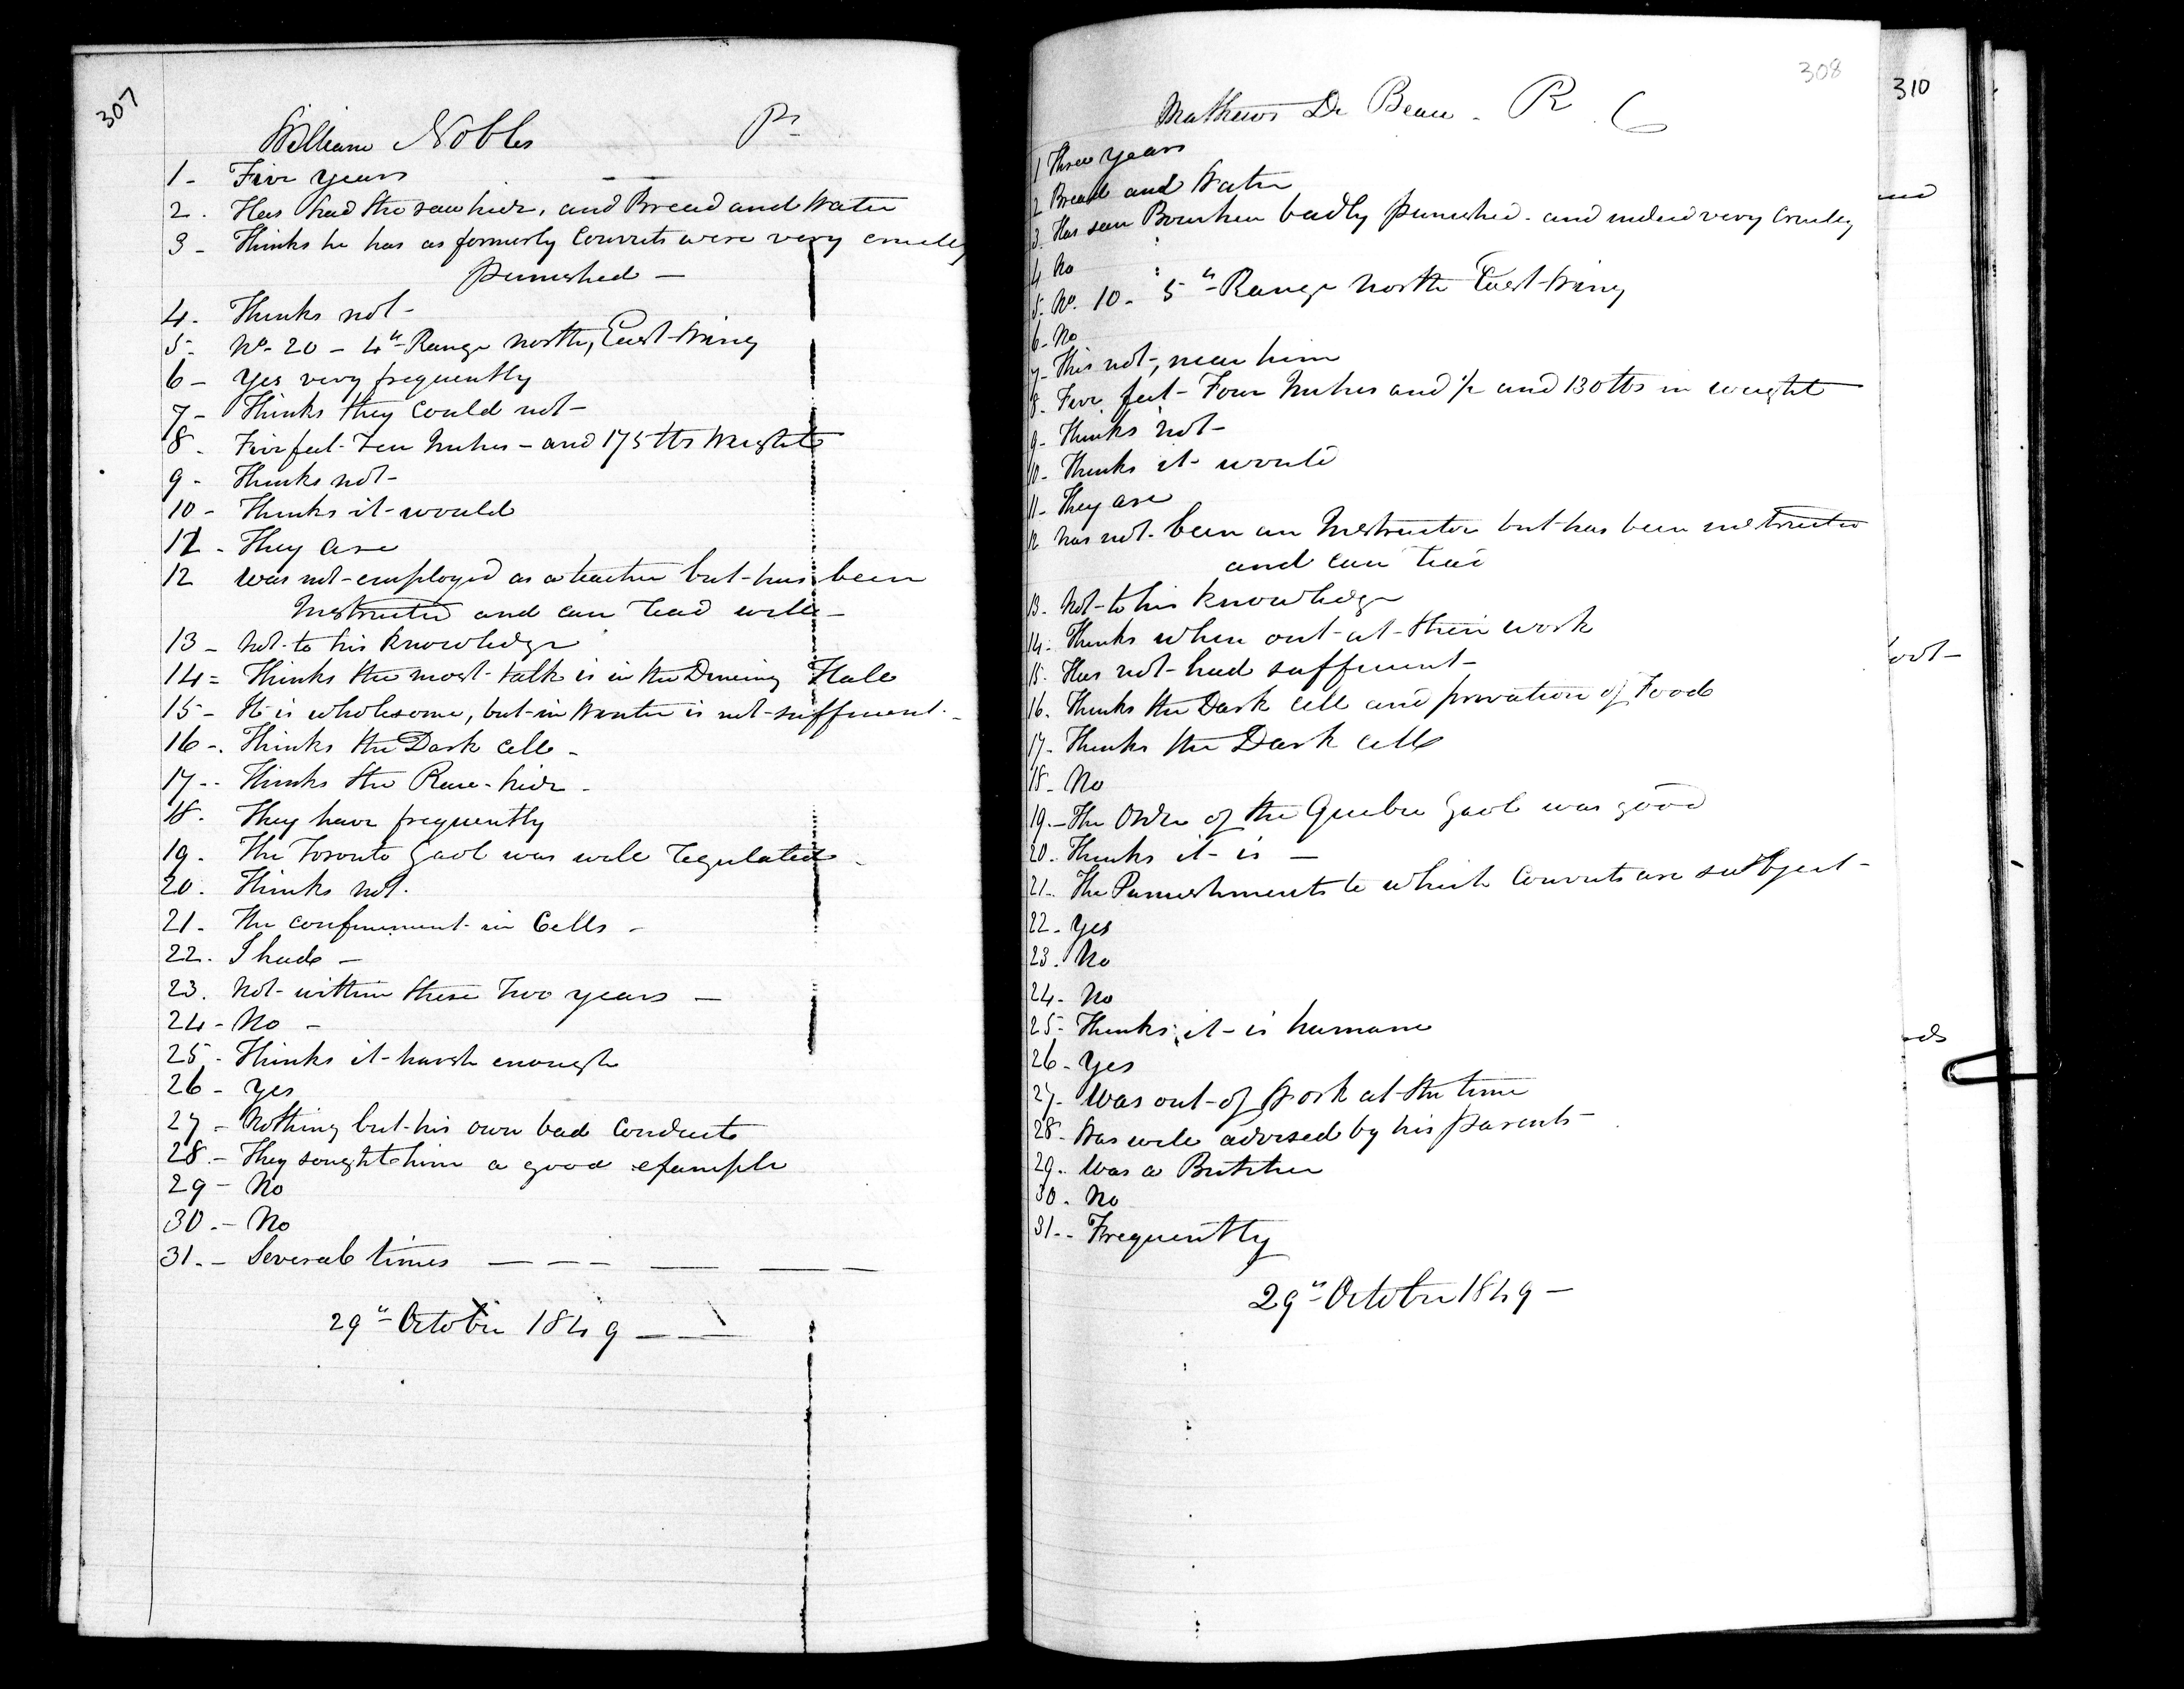 307
William Nobles Pr
1 - Five years
2 . Has had the raw hide, and Bread and Water
3 - Thinks he has as formerly Convicts were very cruelly
punished -
4. Thinks not -
5 - No. 20 - 4th Range north, East Wing
6 - Yes very frequently
7 - Thinks they could not -
8 . Five feet - Ten Inches - and 175 lbs Weight
9 - Thinks not -
10 - Thinks it would
11 - They are
12 was not employed as a teacher but has been
Instructed and can read well -
13 - Not to his knowledge
14 = Thinks the most talk is in the Dining Hall
15 - It is wholesome, but in Winter is not sufficient -
16 -. Thinks the Dark Cell -
17 -- Thinks the Raw-hide -
18. They have frequently
19. The Toronto Gaol was well regulated -
20. Thinks not.
21 - The confinement in Cells -
22. I had -
23. Not within these Two years -
24 - No -
25 - Thinks it harsh enough
26 - yes
27 - Nothing but his own bad Conduct
28 - They sought him a good example
29 - No
30 .- No
31. - Several times - - - - - -
29th October 1849 - -
308
Mathews De Beau - R C
1 Three years
2 Bread and Water
3. Has seen badly punished - and indeed very cruelly
4 No
5. No. 10 - 5th Range North East Wing
6 - No
7 - This not, near him
8. Five feet - Four Inches and 1/2 and 130 lbs in weight
9 - Thinks not -
10 - Thinks it would
11 - They are
12 has not been an Instructor but has been instructed
and can read
13. Not to his knowledge
14. Thinks when out at their work
15. Has not had sufficient -
16. Thinks the Dark Cell and privation of Food
17 - Thinks the Dark Cell
18 - No
19. - The Order of the Quebec Gaol was good
20. Thinks it is -
21. The Punishments to which Convicts are subject -
22 - Yes
23. No
24 - No
25 - Thinks it is humane
26 - Yes
27 - Was out of Work at the time
28 - Was well advised by his parents -
29. Was a Butcher
30. No
31. - Frequently
29th October 1849 -
310